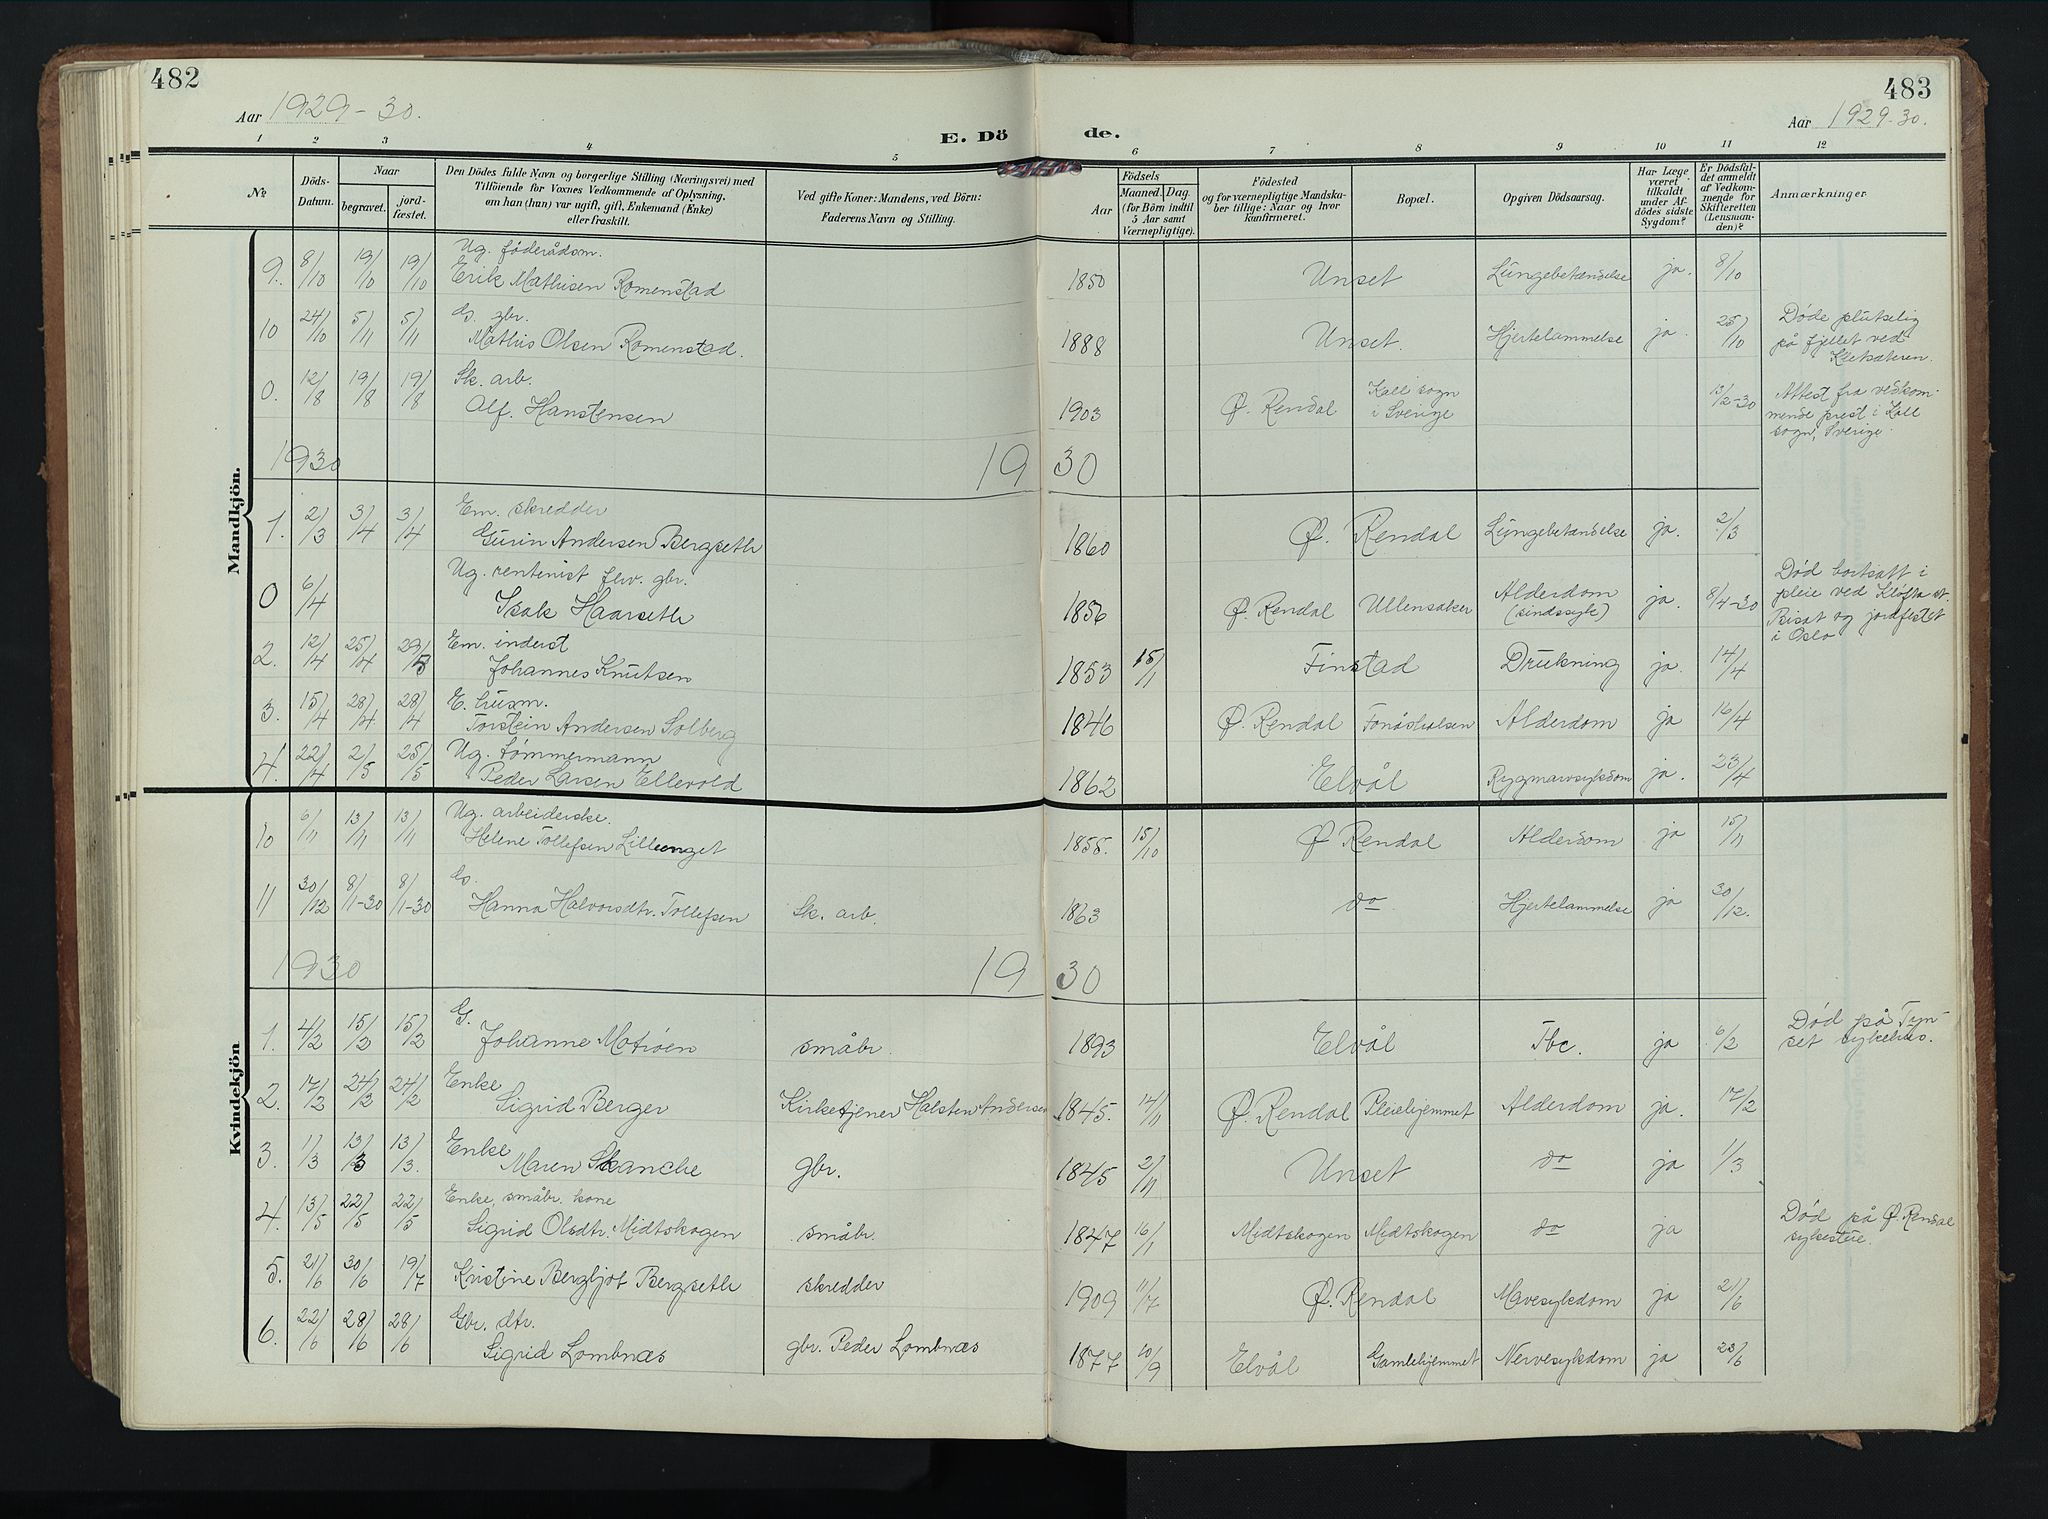 482
483
Aar 1929-30.
E. Dö
de.
Aar 1929-30.
1 2 3 4 5 6 7 8 9 10 11 12
№
Döds-Datum.
Naar
begravet.
jord-fæstet.
Den Dödes fulde Navn og borgerlige Stilling (Næringsvei) med
Tilföiende for Voxnes Vedkommende af Oplysning,
om han (hun) var ugift, gift, Enkemand (Enke)
eller fraskilt.
Ved gifte Koner: Mandens, ved Börn:
Faderens Navn og Stilling.
Födsels
Aar
Maaned. Dag.
(for Börn indtil
5 Aar samt
Værnepligtige).
Födested
og for værnepligtige Mandska-
ber tillige: Naar og hvor
konfirmeret.
Bopæl.
Opgiven Dödsaarsag.
Har Læge
været
tilkaldt
under Af-
dödes sidste
Sygdom?
Er Dödsfal-
det anmeldt
af Vedkom-
mende for
Skifteretten
(Lensman-
den)?
Anmærkninger
Mandkjön.
Ug. føderådsm.
9. 8/10 19/10 19/10 Erik Mathisen Romenstad 1850 Unset Lungebetændelse ja. 8/10
G. gbr.
10 24/10 5/11 5/11 Mathis Olsen Romenstad. 1888 Unset. Hjertelammelse ja. 25/10 Døde plutselig
på fjellet ved
Kletsæteren.
Sk. arb.
0. 12/8 19/8 19/8 Alf. Hanstensen 1903 Ø. Rendal Kall sogn
i Sverige 13/2-30 Attest fra vedkom-
mende prest i Kall
sogn, Sverige.
1930 1930
Em. skredder
1. 2/3 3/4 3/4 Gurin Andersen Bergseth 1860 Ø. Rendal Lungebetændelse ja. 2/3
Ug. rentenist fhv. gbr.
0 6/4 Isak Haarseth 1856 Ø. Rendal Ullensaker Alderdom
(sindssyk) ja. 8/4-30 Død bortsatt i
pleie ved Kløfta st.
Bisat og jordfestet
i Oslo
Em. inderst
2. 12/4 25/4 29/5 Johannes Knutsen 1853 15/1 Finstad Drukning ja. 14/4
E. husm.
3. 15/4 28/4 28/4 Torstein Andersen Solberg 1846 Ø. Rendal Fonåshalsen Alderdom ja 16/4
Ug. tømmermann
4. 22/4 2/5 25/5 Peder Larsen Ellevold 1862 Elvål Rygmarvsykdom ja. 23/4
Kvindekjön
Ug. arbeiderske.
10 6/11 13/11 13/11 Helene Tollefsen Lillenget 1855. 15/10 Ø. Rendal Alderdom ja 15/11
G.
11 30/12 8/1-30 8/1-30 Hanna Halvorsdtr. Tollefsen Sk. arb. 1863 do Hjertelammelse ja 30/12.
1930 1930
G.
1. 4/2 15/2 15/2 Johanne Motrøen småbr. 1893 Elvål Tbc. ja 6/2 Død på Tyn-
set sykehus.
Enke
2. 17/2 24/2 24/2 Sigrid Berger Kirketjener Halsten Andersen 1845. 14/11 Ø. Rendal Pleiehjemmet Alderdom ja. 17/2
Enke
3. 1/3 13/3 13/3. Maren Skanche gbr. 1845 2/11 Unset do ja 1/3
Enke, småbr. kone
4. 13/5 22/5 22/5 Sigrid Olsdtr. Midtskogen småbr. 1847 16/1 Midtskogen Midtskogen do ja Død på Ø. Rendal
sykestue.
5. 21/6 30/6 19/7 Kristine Bergljot Bergseth skredder 1909 11/17 Ø. Rendal Mavesykdom ja 21/6
Gbr. dtr.
6. 22/6 28/6 28/6 Sigrid Lombnæs gbr. Peder Lombnæs 1877 10/9 Elvål Gamlehjemmet Nervesykdom ja 23/6